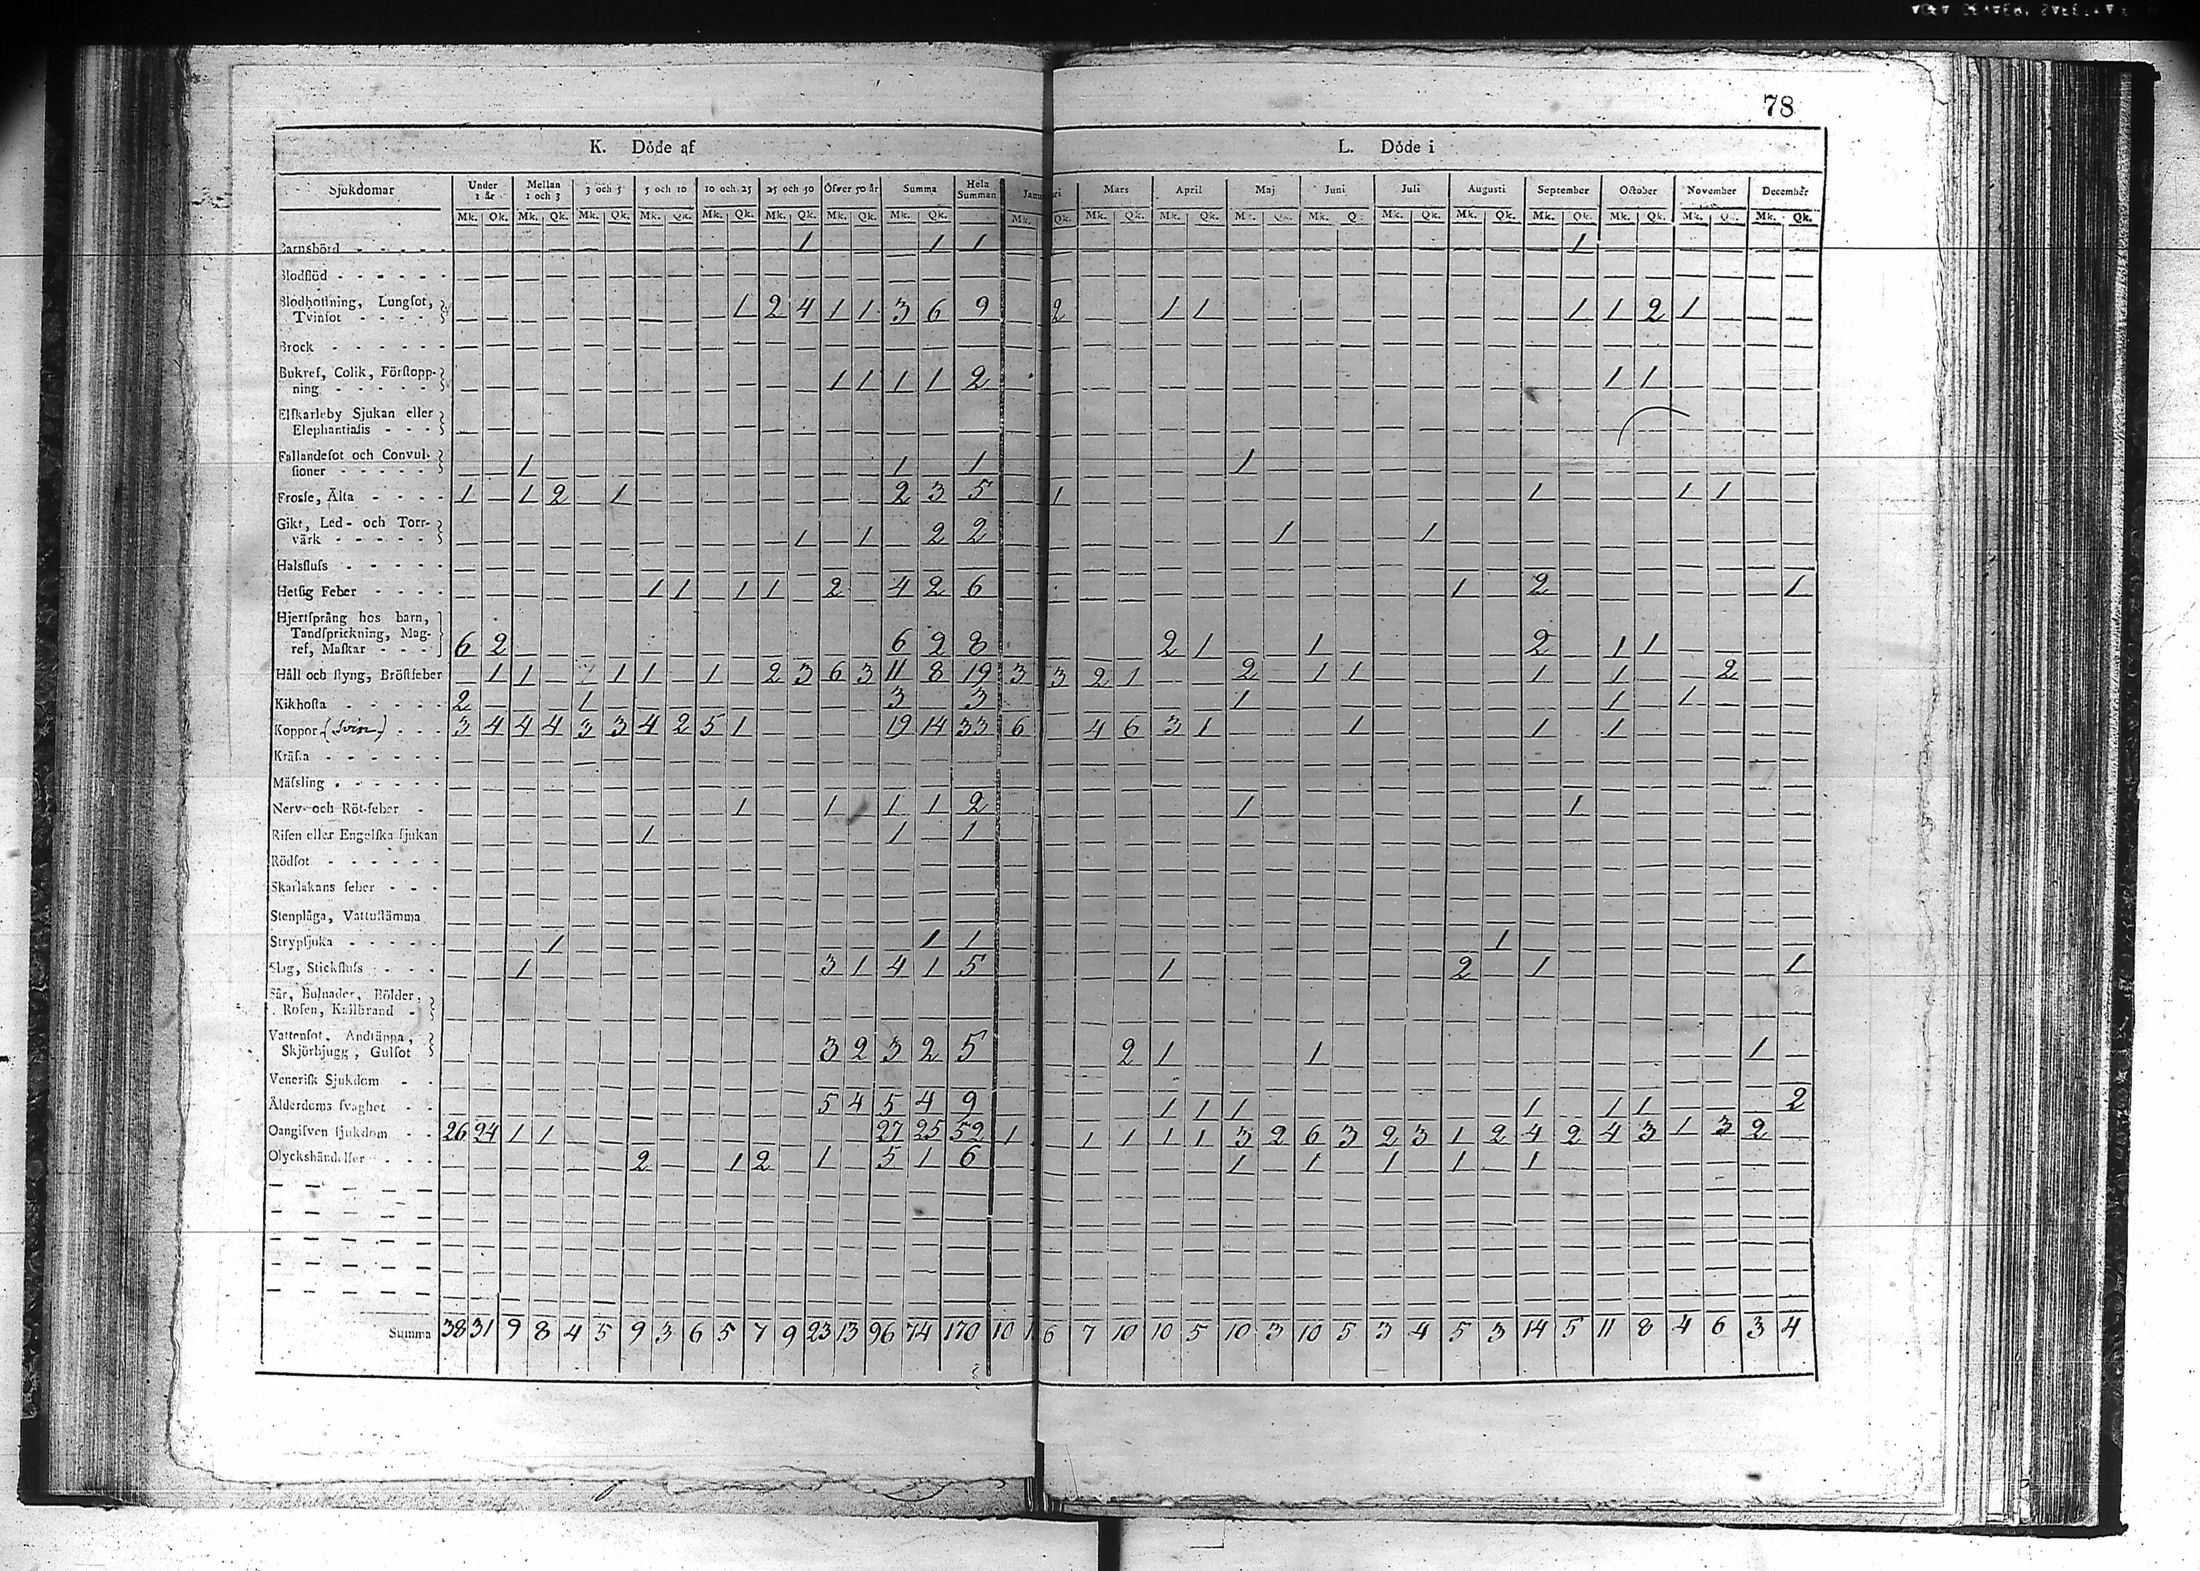 78
K. Döde af L. Döde i
Sjukdomar Under 1 år Mellan 1 och 3 3 och 5 5 och 10 10 och 25 25 och 50 Öfver 50 år Summa Hela Summan Mars April Maj Juni Juli Augusti September October November December
Mk. Qk. Mk. Qk. Mk. Qk. Mk. Qk. Mk. Qk. Mk. Qk. Mk. Qk. Mk. Qk. Mk. Qk. Mk. Qk. Mk. Qk. Mk. Qk. Mk. Mk. Qk. Mk. Qk. Mk. Qk. Mk. Qk. Mk. Qk. Mk. Qk.
Barnsbörd - - - - - 1 1 1 1
Blodflöd - - - - - -
Blodhostning, Lungsot,
Tvinsot - - - - 1 2 4 1 1 3 6 9 2 1 1 1 1 2 1
Brock - - - - - -
Bukref, Colik, Förstopp-
ning - - - - - 1 1 1 1 2 1 1
Elfkarleby Sjukan eller
Elephantiasis - - -
Fallandesot och Convul-
sioner - - - - - 1 1 1 1
Frosse, Älta - - - - 1 1 2 1 2 3 5 1 1 1 1
Gikt, Led- och Torr-
värk - - - - - 1 1 2 2 1 1
Halsfluss - - - - -
Hetsig Feber - - - - 1 1 1 1 2 4 2 6 1 2 1
Hjertsprång hos barn,
Tandsprickning, Mag-
ref, Maskar - - - 6 2 6 2 8 2 1 1 2 1 1
Håll och styng, Bröstfeber 1 1 1 1 1 2 3 6 3 11 8 19 3 3 2 1 2 1 1 1 1 2
Kikhosta - - - - - 2 1 3 3 1 1 1
Koppor - - - 3 4 4 4 3 3 4 2 5 1 19 14 33 6 4 6 3 1 1 1 1
Kräfta - - - - - -
Mässling - - - - - -
Nerv- och Röt-feber - 1 1 1 1 2 1 1
Risen eller Engelska sjukan 1 1 1
Rödsot - - - - - -
Skarlakans feber - - -
Stenplåga, Vattustämma
Strypsjuka - - - - - 1 1 1 1
Slag, Stickfluss - - - 1 3 1 4 1 5 1 2 1 1
Sår, Bulnader, Bölder,
Rosen, Kallbrand -
Vattensot, Andtäppa,
Skjörbjugg, Gulsot 3 2 3 2 5 2 1 1 1
Venerisk Sjukdom - -
Ålderdoms svaghet - - 5 4 5 4 9 1 1 1 1 1 1 2
Oangifven sjukdom - - 26 24 1 1 27 25 52 1 1 1 1 1 3 2 6 3 2 3 1 2 4 2 4 3 1 3 2
Olyckshändelser - - - 2 1 2 1 5 1 6 1 1 1 1 1
Summa 38 31 9 8 4 5 9 3 6 5 7 9 23 13 96 74 170 10 6 7 10 10 5 10 3 10 5 3 4 5 3 14 5 11 8 4 6 3 4